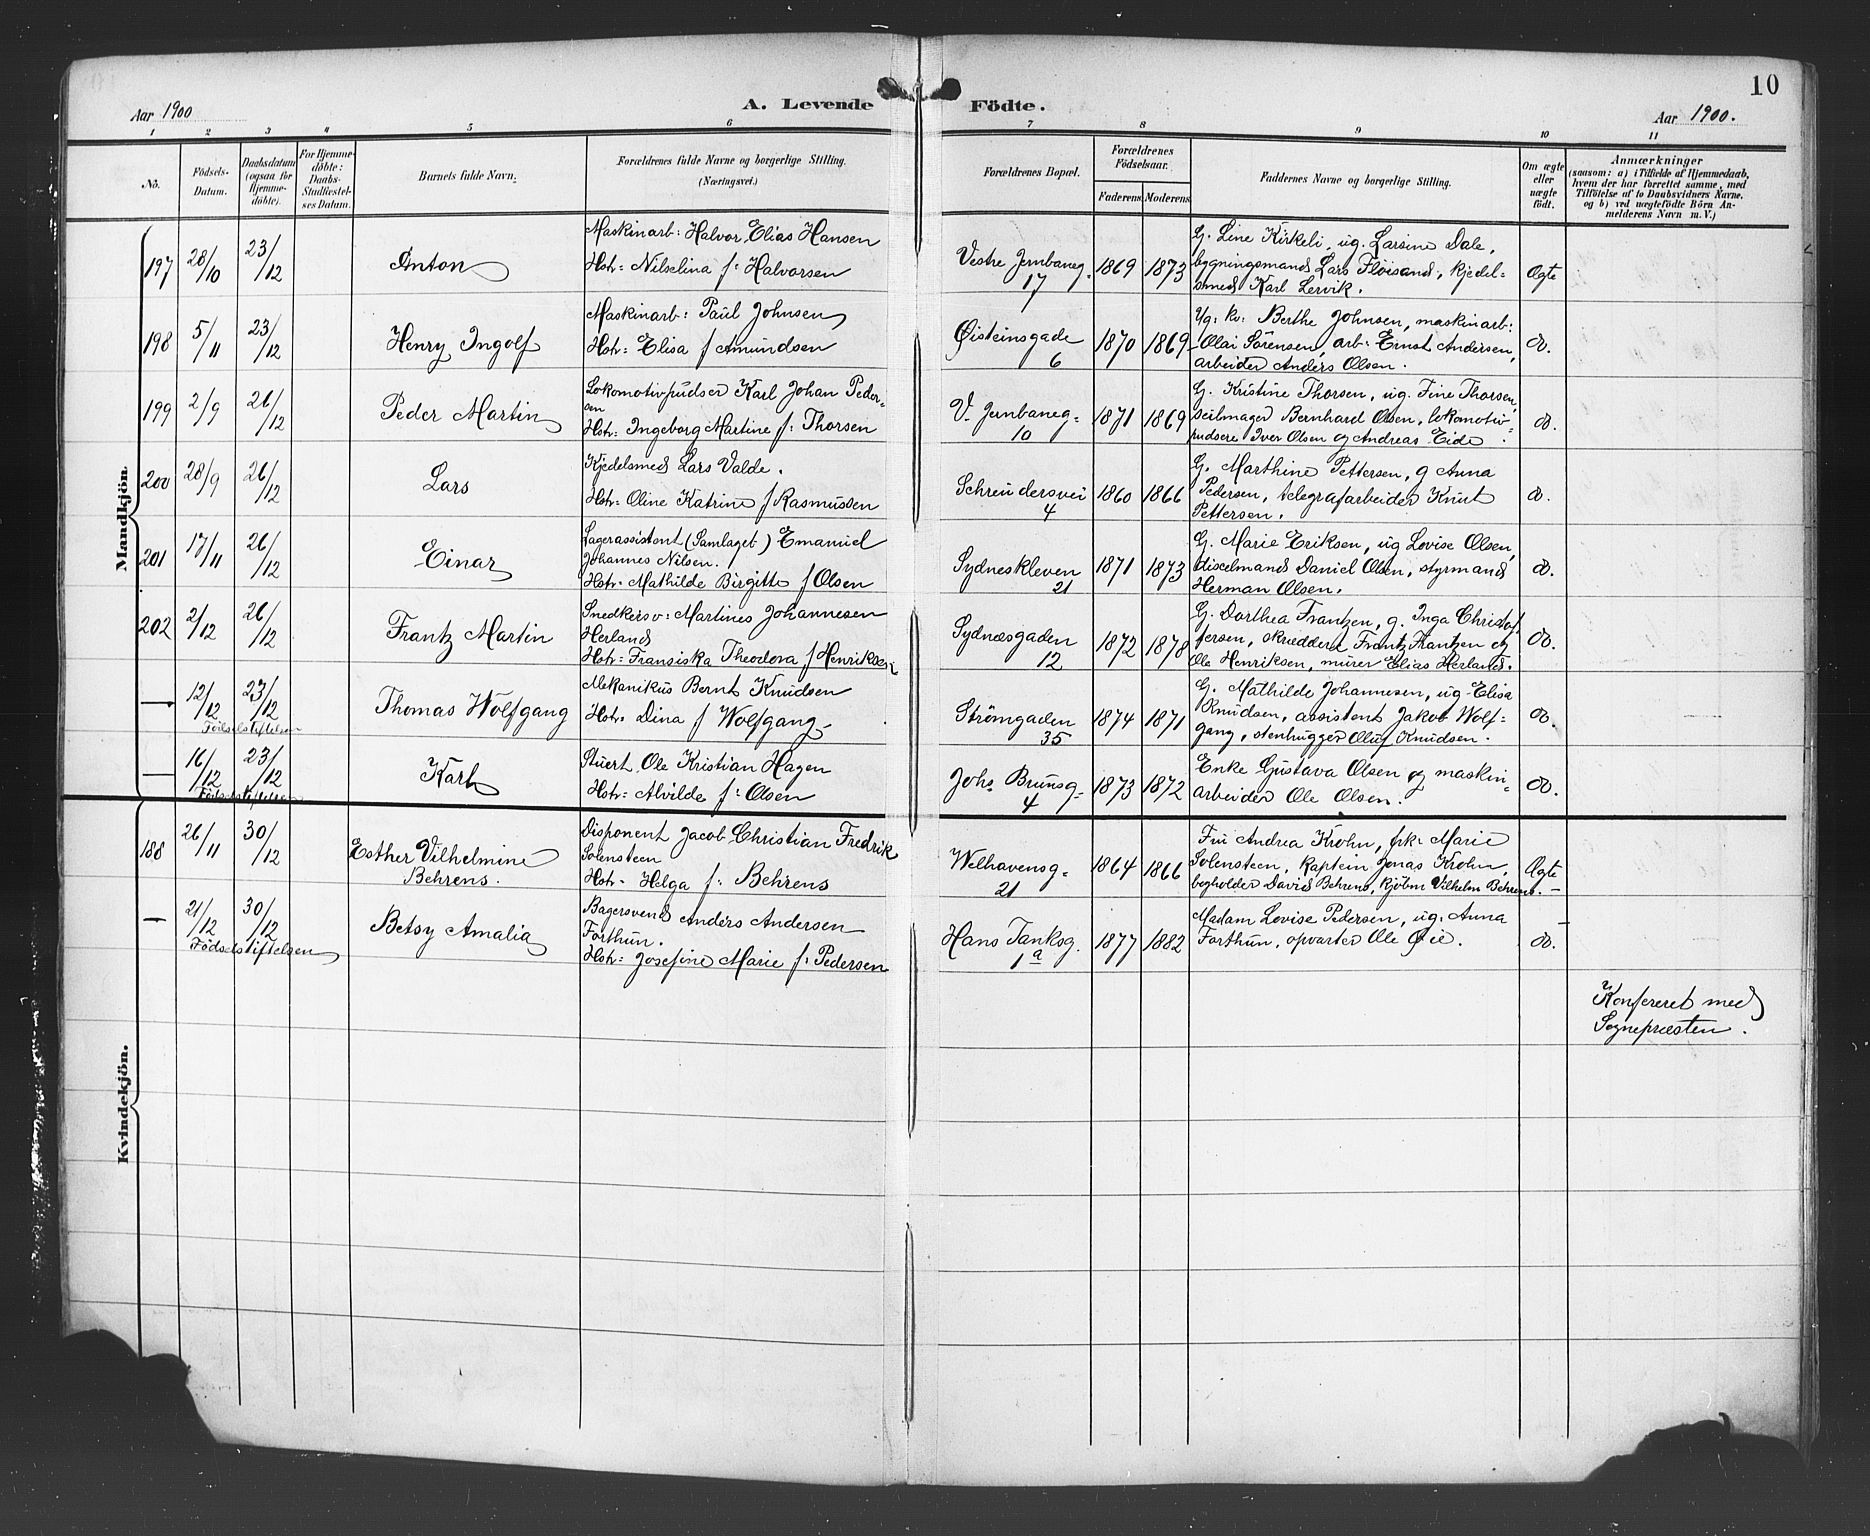 10
Aar 1900
A. Levende Födte.
Aar 1900.
1 2 3 4 5 6 7 8 9 10 11
No.
Födsels-
Datum.
Daabsdatum
(ogsaa för
Hjemme-
döbte).
For Hjemme-
döbte:
Daabs-
Stadfæstel-
ses Datum.
Barnets fulde Navn.
Forældrenes fulde Navne og borgerlige Stilling.
(Næringsvei.)
Forældrenes Bopæl.
Forældrenes
Födselsaar.
Faderens Moderens
Faddernes Navne og borgerlige Stilling.
Om ægte
eller
uægte
födt.
Anmærkninger
(saasom: a) i Tilfælde af Hjemmedaab,
hvem der har forrettet samme, med
Tilföielse af to Daabsvidners Navne,
og b) ved uægtefödte Börn An-
melderens Navn m. V.)
Mandkjön.
197
28/10
23/12
Anton
Maskinarb: Halvor Elias Hansen
Hstr: Nilselina f: Halvorsen
Vestre Jernbaneg.
17
1869
1873
G. Line Kirkeli, ug. Larsine Dale,
bygningsmand Lars Floisand, kjedel-
smed Karl Lervik.
Ægte
198
5/11
23/12
Henry Ingolf
Maskinarb: Paul Johnsen
Hstr: Elisa f Amundsen
Øisteinsgade
6
1870
1869
Ug: kv: Berthe Johnsen, maskinarb:
Olai Sörensen, arb: Ernst Andersen,
arbeider Anders Olsen.
do.
199
2/9
26/12
Peder Martin
Lokomotivpudser Karl Johan Peder-
sen
Hstr: Ingeborg Martine f: Thorsen
V. Jernbaneg-
10
1871
1869
G. Kristine Thorsen, ug. Fine Thorsen,
seilmager Bernhard Olsen, lokomotiv-
pudsere Iver Olsen og Andreas Eide.
do.
200
28/9
26/12
Lars
Kjedelsmed Lars Valde.
Hstr: Oline Katrine f Rasmussen
Schreudersvei
4
1860
1866
G. Marthine Pettersen, g Anna
Pedersen, telegrafarbeider Knut
Pettersen.
do.
201
17/11
26/12
Einar
Lagerassistent (Samlaget) Emanuel
Johannes Nilsen.
Hstr. Mathilde Birgitte f Olsen
Sydneskleven
21
1871
1873
G. Marie Eriksen, ug Lovise Olsen,
diselmand Daniel Olsen, styrmand
Herman Olsen.
do.
202
2/12
26/12
Frantz Martin
Snedkersv: Martines Johannesen
Herland
Hstr: Fransiska Theodora f Henriksen
Sydnæsgaden
12
1872
1878
G. Dorthea Frantzen, g. Inga Christof-
fersen, skrædder Frantz Frantzen og
Ole Henriksen, murer Elias Herland.
do.
—
12/12
23/12
Födselstiftelsen
Thomas Wolfgang
Mekanikus Bernt Knudsen
Hstr. Dina f Wolfgang
Strömgaden
35
1874
1871
G. Mathilde Johannesen, ug. Elisa
Knudsen, assistent Jakob Wolf-
gang, stenhugger Oluf Knudsen.
do.
—
16/12
23/12
Födselstiftelsen
Karl
Stuert Ole Kristian Hagen
Hstr: Alvilde f: Olsen
Johs Brunsg-
4
1873
1872
Enke Gustava Olsen og maskin-
arbeider Ole Olsen.
do.
Kvindekjön.
188
26/11
30/12
Esther Vilhelmine
Behrens.
Disponent Jacob Christian Fredrik
Solensteen
Hstr. Helga f: Behrens
Welhavensg-
21
1864
1866
Fru Andrea Krohn, frk: Marie
Solensteen, Kaptein Jonas Krohn,
bogholder David Behrens, kjöbm Vilhelm Behrens.
Ægte
—
21/12
30/12
Födselstiftelsen
Betsy Amalia
Bagersvend Anders Andersen
Forthun.
Hstr: Josefine Marie f: Pedersen
Hans Tanksg.
1a
1877
1882
Madam Lovise Pedersen, ug. Anna
Forthun, opvarter Ole Øie.
do.
Konfereret med
Sognepræsten.